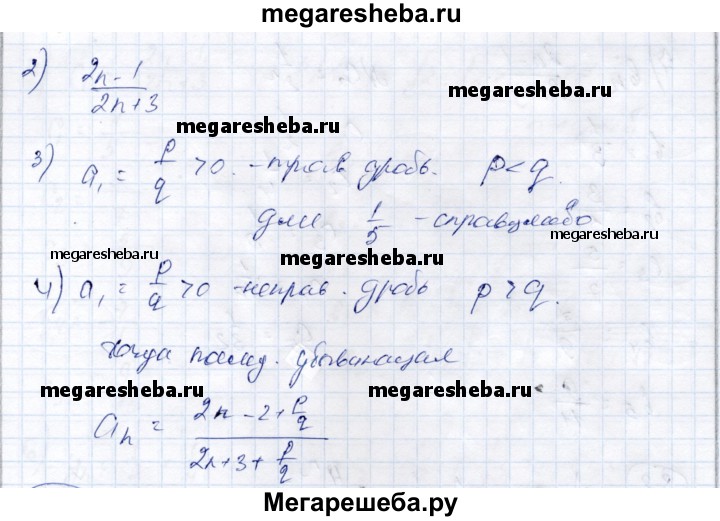 megaresheba.ru
2) (2n-1)/(2n+3)
megaresheba.ru
megaresheba.ru
3) a₁ = p/q > 0. - прав дробь. p < q.
для 1/5 - справедливо
megaresheba.ru
megaresheba.ru
megaresheba.ru
4) a₁ = p/q > 0 - неправ. дробь p > q.
тогда убывающая
megaresheba.ru
megaresheba.ru
aₙ = (2n-2+p/q)/(2n+3+p/q)
Мегарешеба.ру